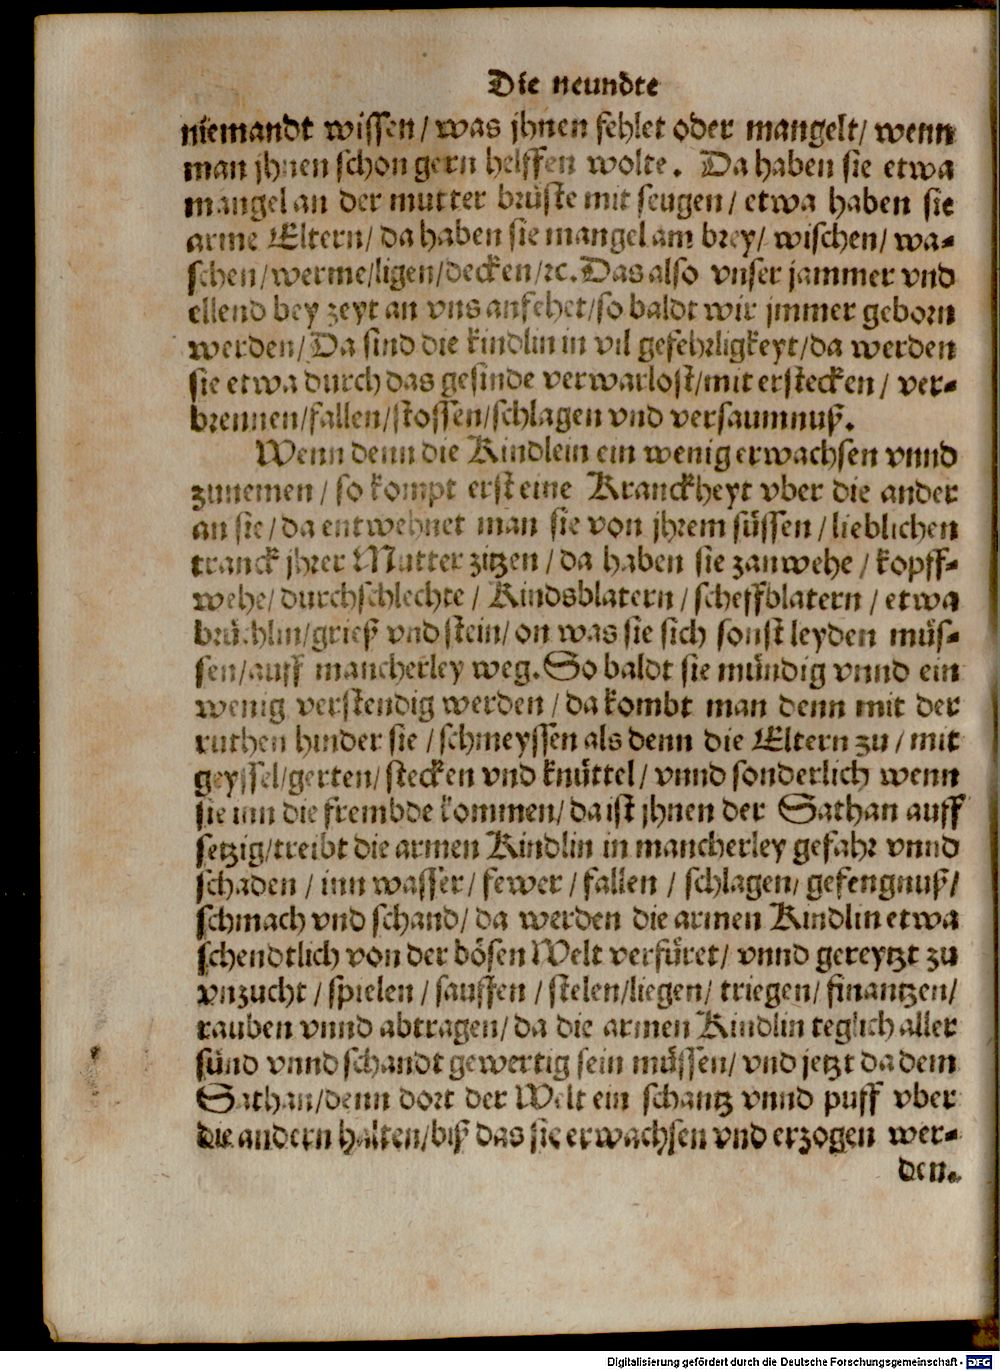 Die neundte
niemandt wissen / was jhnen fehlet oder mangelt / wenn
man jhnen schon gern helffen wolte. Da haben sie etwa
mangel an der mutter brüste mit seugen / etwa haben sie
arme Eltern / da haben sie mangel am brey / wischen / wa-
schen / werme / ligen / decken / ꝛc. Das also vnser jammer vnd
ellend bey zeyt an vns anfehet / so baldt wir jmmer geborn
werden / Da sind die kindlin in vil gefehrligkeyt / da werden
sie etwa durch das gesinde verwarlost / mit erstecken / ver-
brennen / fallen / stossen / schlagen vnd versaumnuß.
Wenn denn die Kindlein ein wenig erwachsen vnnd
zunemen / so kompt erst eine Kranckheyt vber die ander
an sie / da entwehnet man sie von jhrem süssen / lieblichen
tranck jhrer Mutter zitzen / da haben sie zanwehe / kopff-
wehe / durchschlechte / Kindsblatern / scheffblatern / etwa
brüchlin / grieß vnd stein / on was sie sich sonst leyden müs-
sen / auff mancherley weg. So baldt sie mündig vnnd ein
wenig verstendig werden / da kombt man denn mit der
ruthen hinder sie / schmeyssen als denn die Eltern zu / mit
geyssel / gerten / stecken vnd knüttel / vnnd sonderlich wenn
sie inn die frembde kommen / da ist jhnen der Sathan auff
setzig / treibt die armen Kindlin in mancherley gefahr vnnd
schaden / inn wasser / fewer / fallen / schlagen / gefengnuß /
schmach vnd schand / da werden die armen Kindlin etwa
schendtlich von der bösen Welt verfüret / vnnd gereytzt zu
vnzucht / spielen / sauffen / stelen / liegen / triegen / finantzen /
rauben vnnd abtragen / da die armen Kindlin teglich aller
sünd vnnd schandt gewertig sein müssen / vnd jetzt da dem
Sathan / denn dort der Welt ein schantz vnnd puff vber
die andern halten / biß das sie erwachsen vnd erzogen wer-
den.
Digitalisierung gefördert durch die Deutsche Forschungsgemeinschaft - DFG